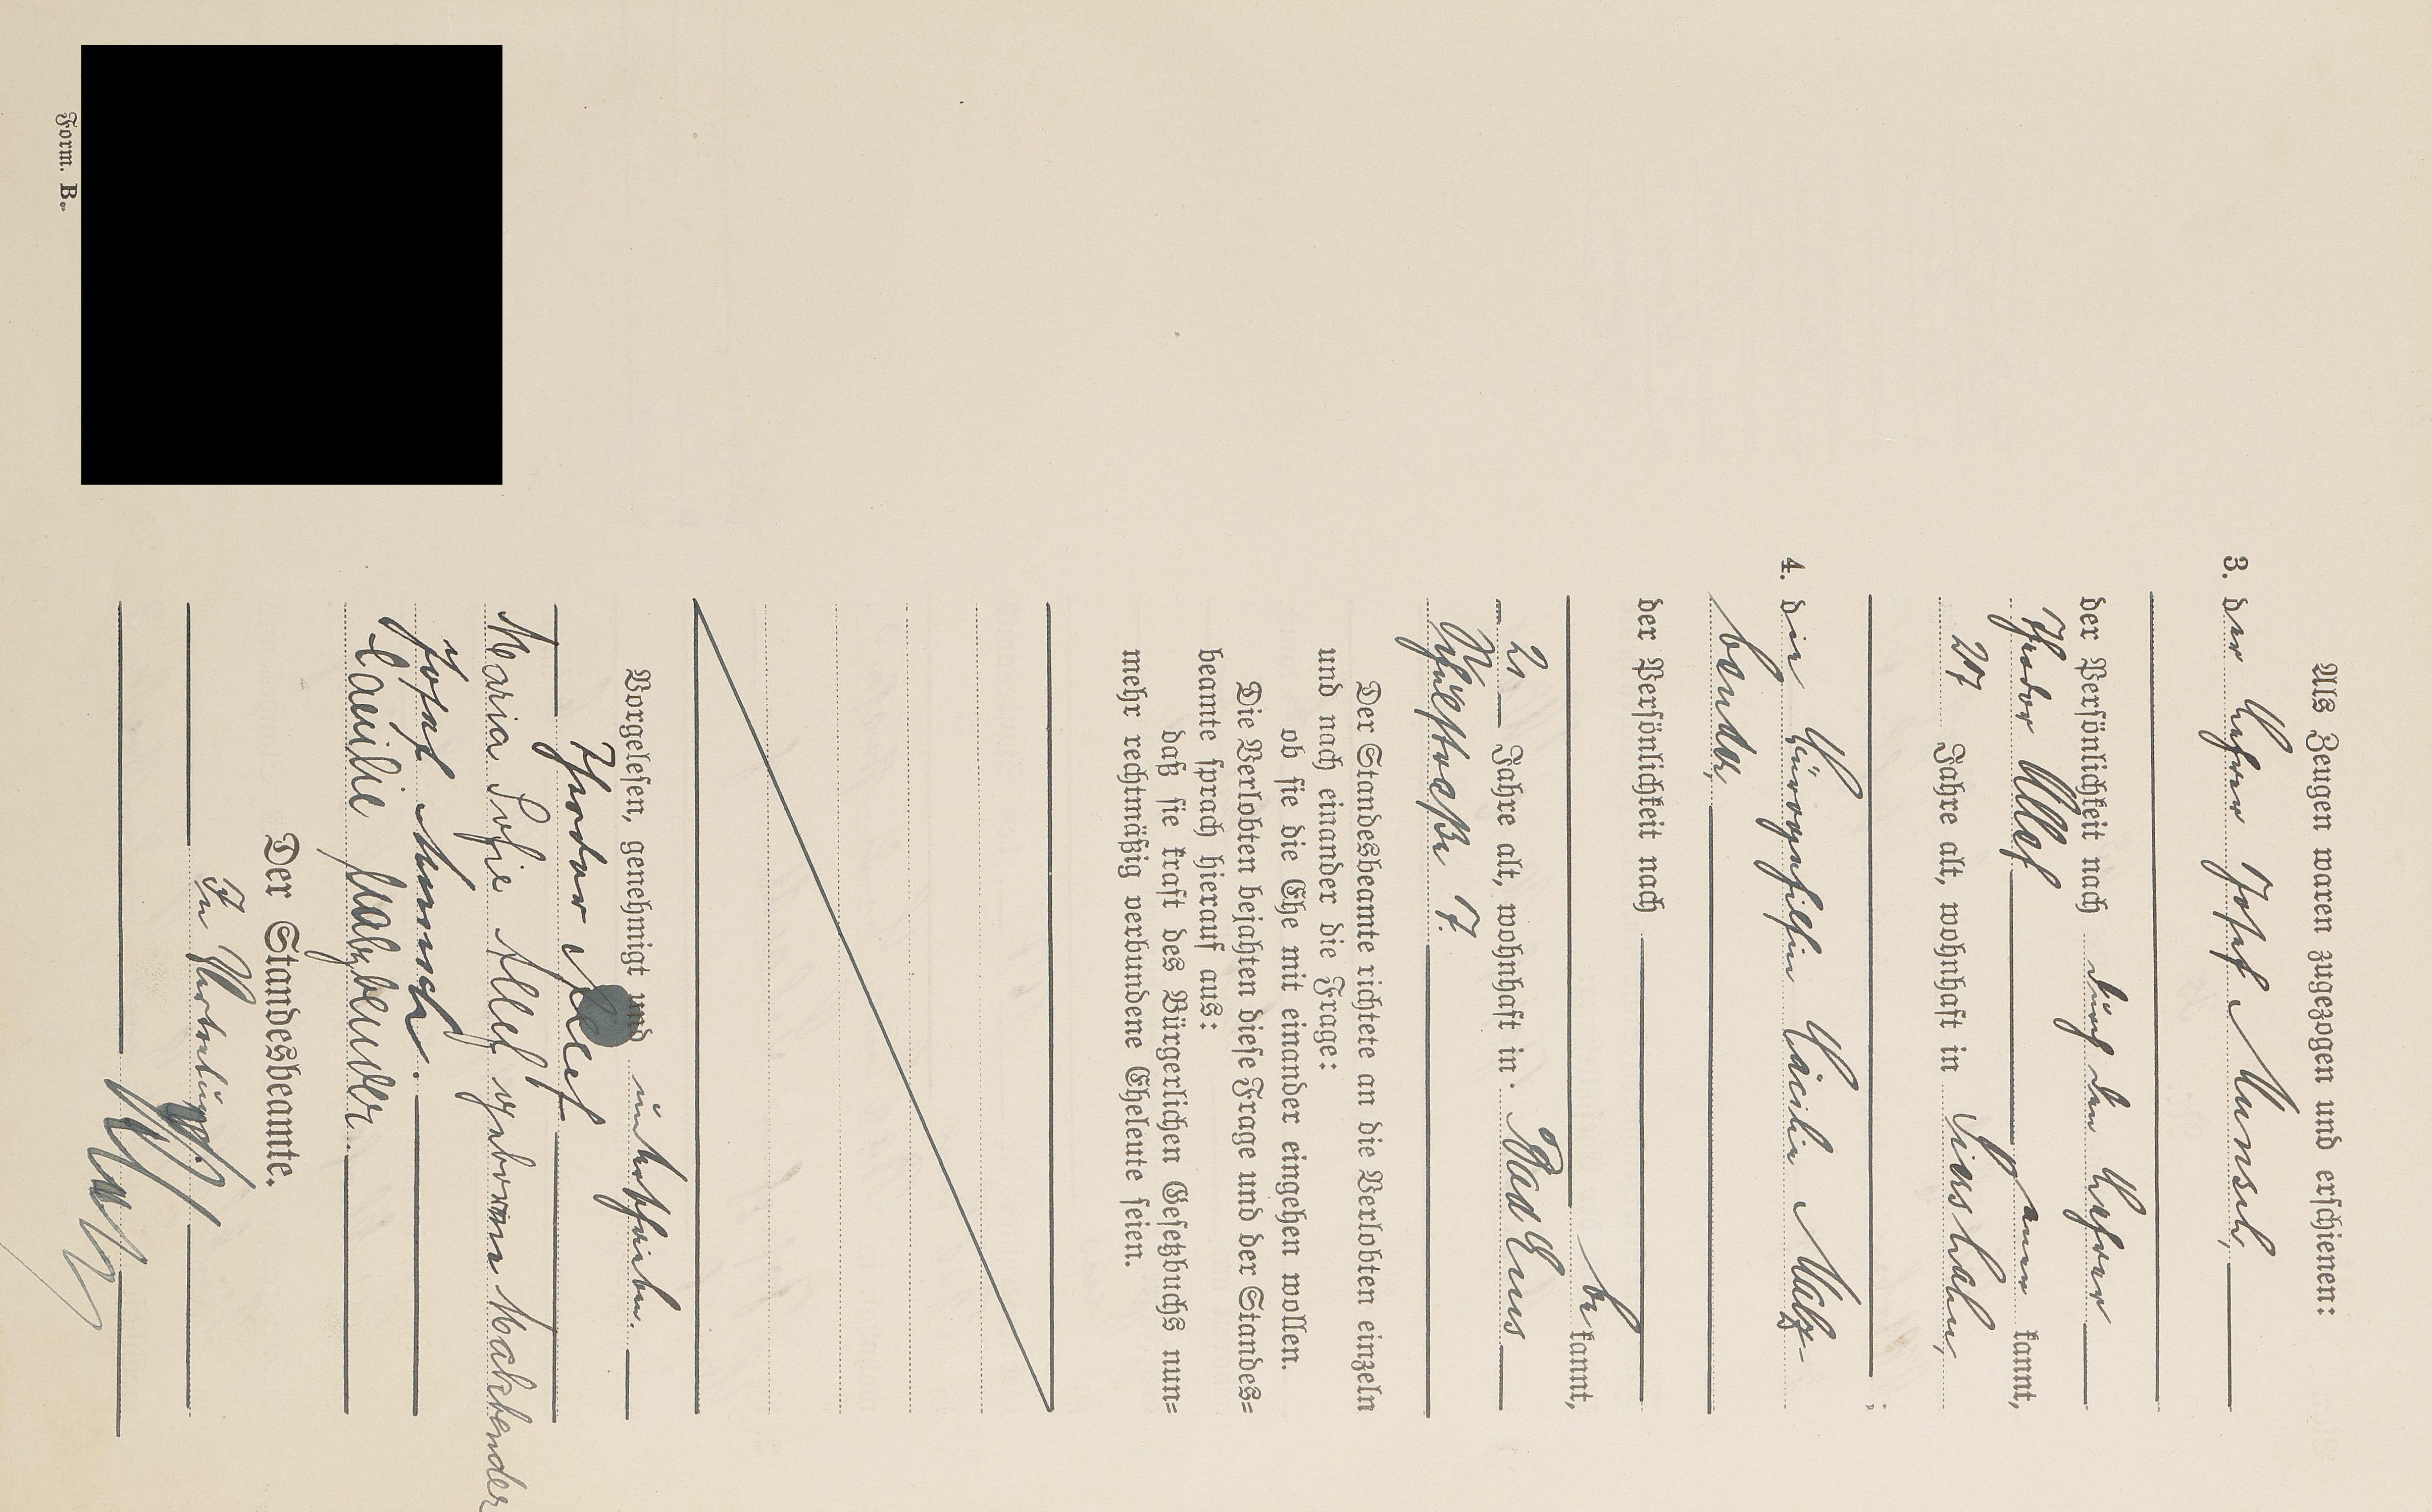 Als Zeugen waren zugezogen und erschienen:
3. der Lehrer Josef Munsch,
der Persönlichkeit nach durch den Lehrer
Theodor Allef aner kannt,
27 Jahre alt, wohnhaft in Sinshahn,
4. die Bürogehilfin Cäcilie Malz-
bender,
der Persönlichkeit nach
be kannt,
21 Jahre alt, wohnhaft in Bad Ems
17.
Der Standesbeamte richtete an die Verlobten einzeln
und nach einander die Frage:
ob sie die Ehe mit einander eingehen wollen.
Die Verlobten bejahten diese Frage und der Standes=
beamte sprach hierauf aus:
daß sie kraft des Bürgerlichen Gesetzbuchs nun=
mehr rechtmäßig verbundene Eheleute seien.
Vorgelesen, genehmigt und unterschrieben.
Theodor Allef
Maria Sofie Allef geborene Malzbender
Josef Munsch.
Caecilie Malzbender.
Der Standesbeamte.
In Vertretung.
Form. B.